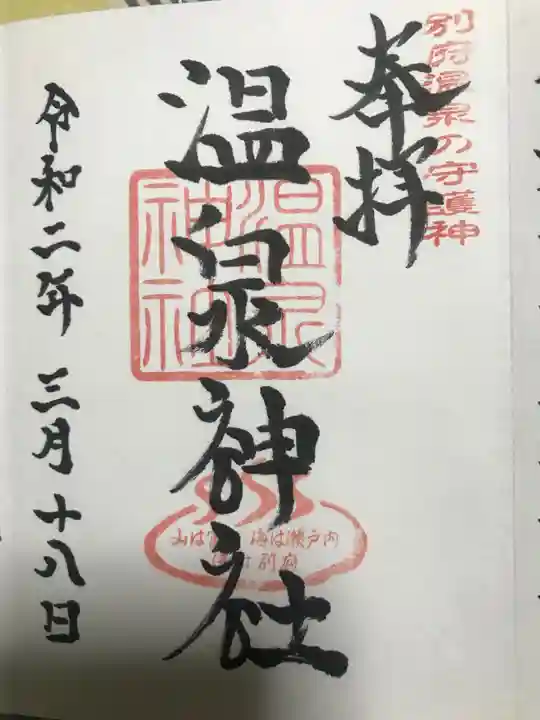 別府温泉の守護神
奉拝
温泉神社
温泉
神社
山は 海は瀬戸内
別府
令和二年 三月十八日